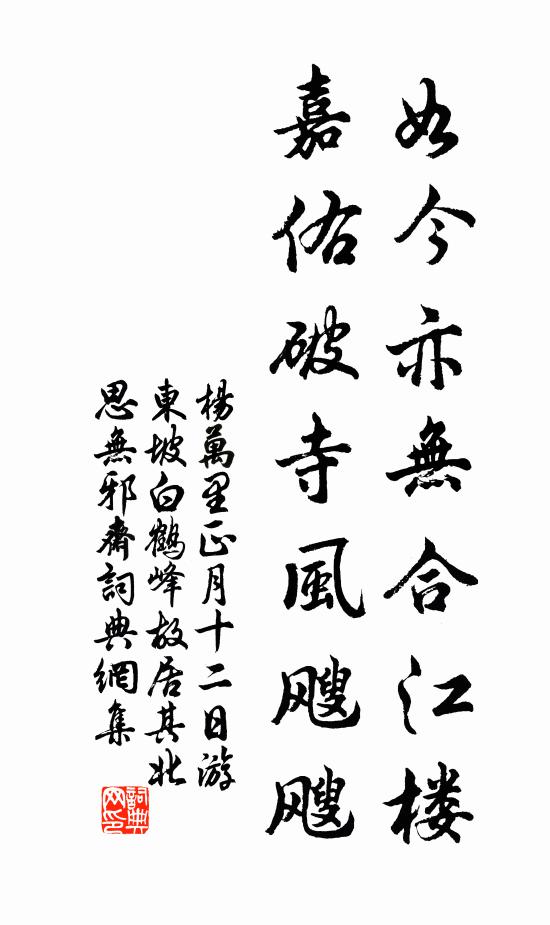 如今亦無合江楼
嘉佑破寺風飕飕
楊萬里正月十二日游
東坡白鶴峰故居其北
思無邪齋詞典網集
詞典網印